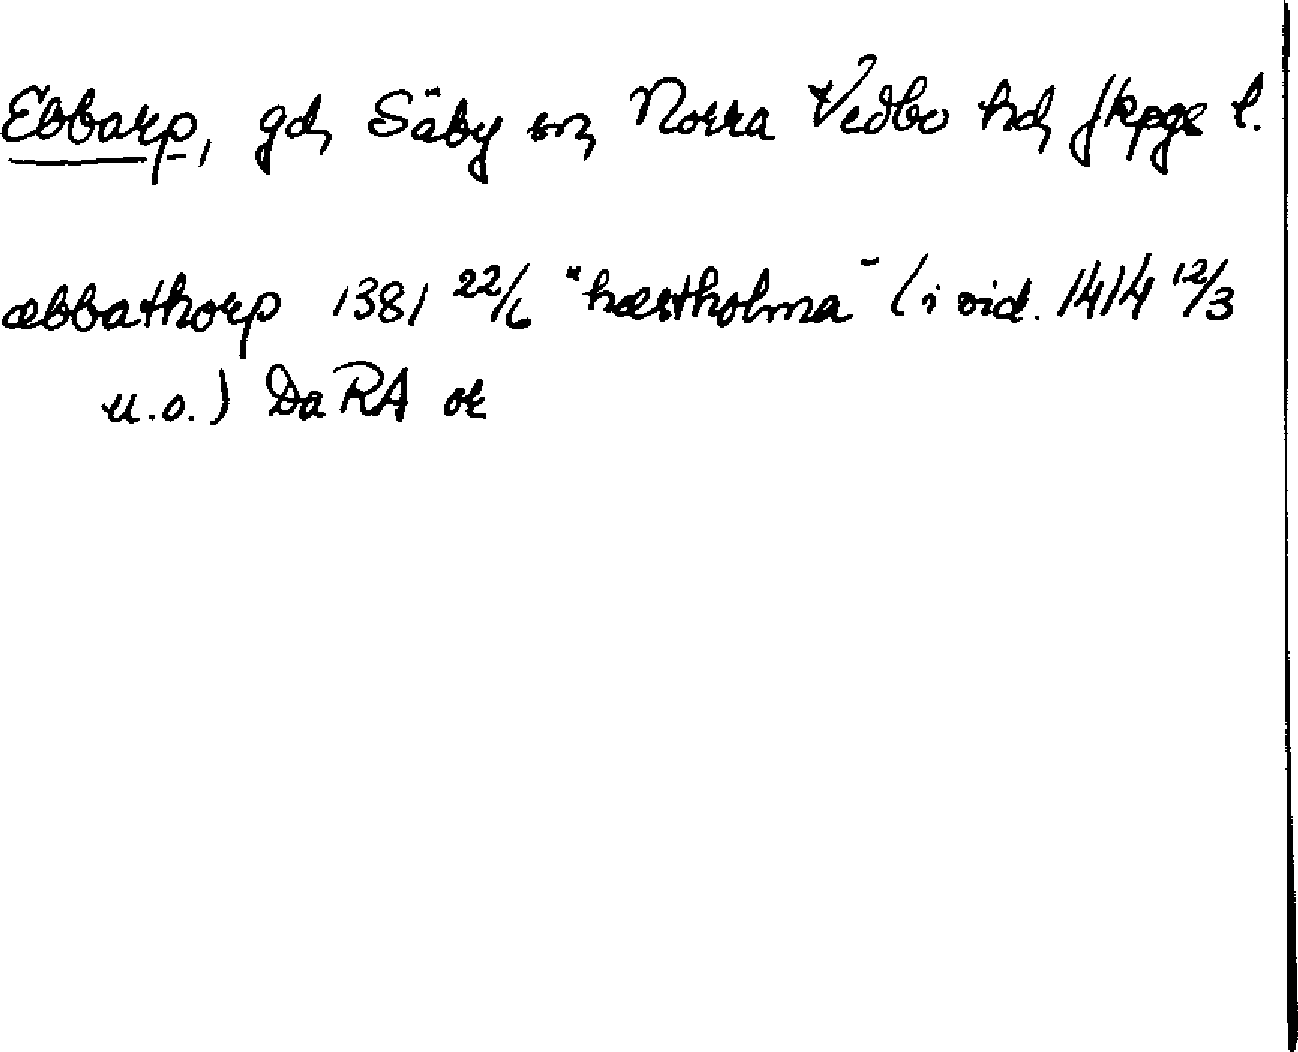 Ebbarp, gd, Säby sn, Norra Vedbo hd, Jkpgs l.
æbbathorp 1381 22/6 "hæstholma" (i vid. 1414 12/3
u.o.) Da RA or